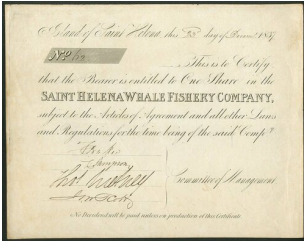 Island of Saint Helena, this day of 1837
No.
This is to Certify
that the Bearer is entitled to One Share in the
SAINT HELENA WHALE FISHERY COMPANY,
subject to the Articles of Agreement and all other Laws
and Regulations for the time being of the said Compy.
Committee of Management
No Dividend will be paid unless on production of this Certificate